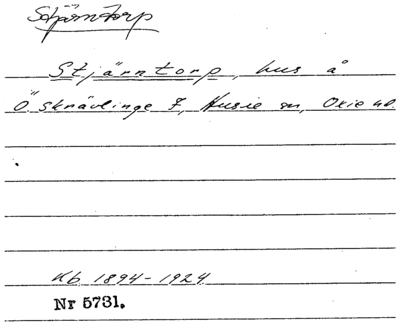 Stjärntorp
Stjärntorp, hus å
Ö. Skrävlinge 7, Husie sn, Oxie hd.
Kb 1894-1924
Nr 5731.